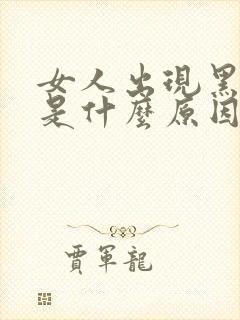 女人出現黑
是什麼原因
賈軍龍